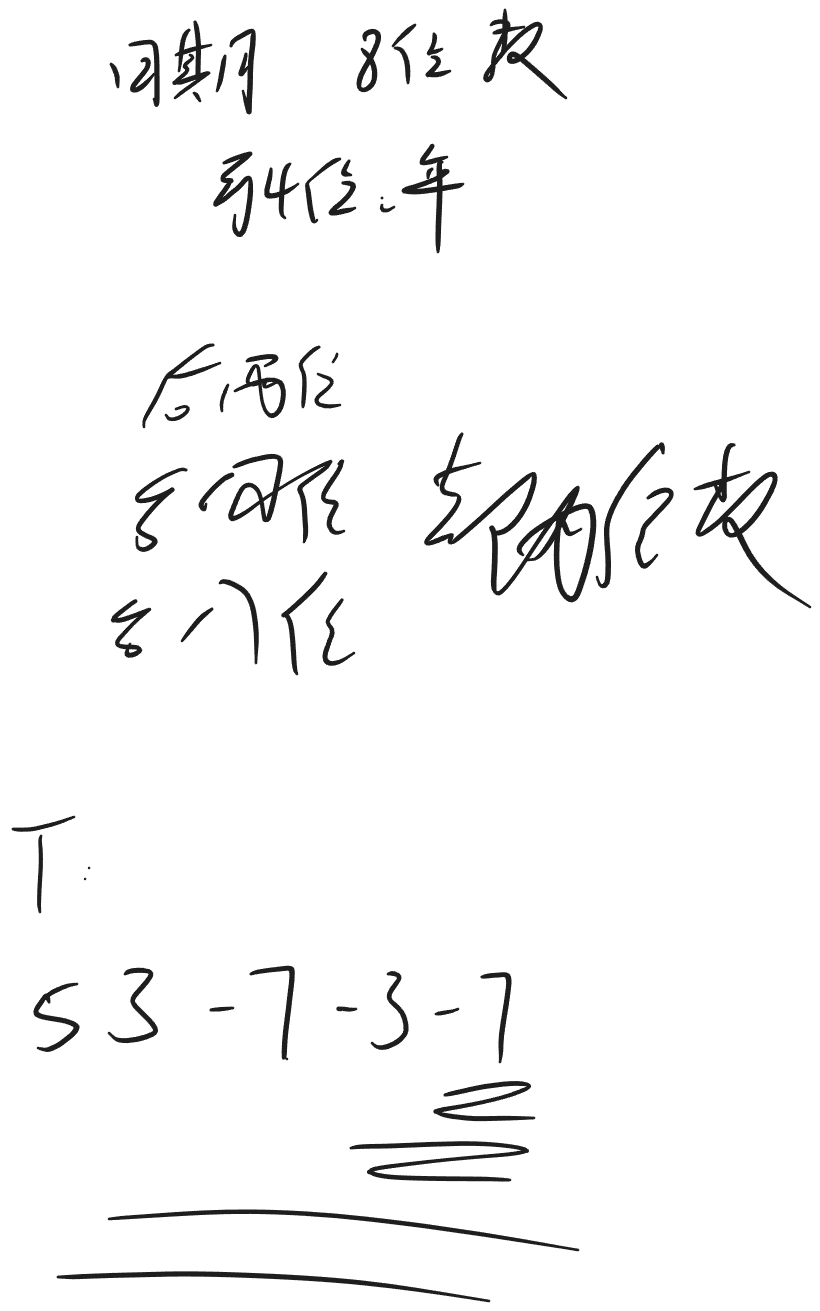 日期 8位数
前4位:年
后两位
后四位 都两位数
后八位
T:
53-7-3-7